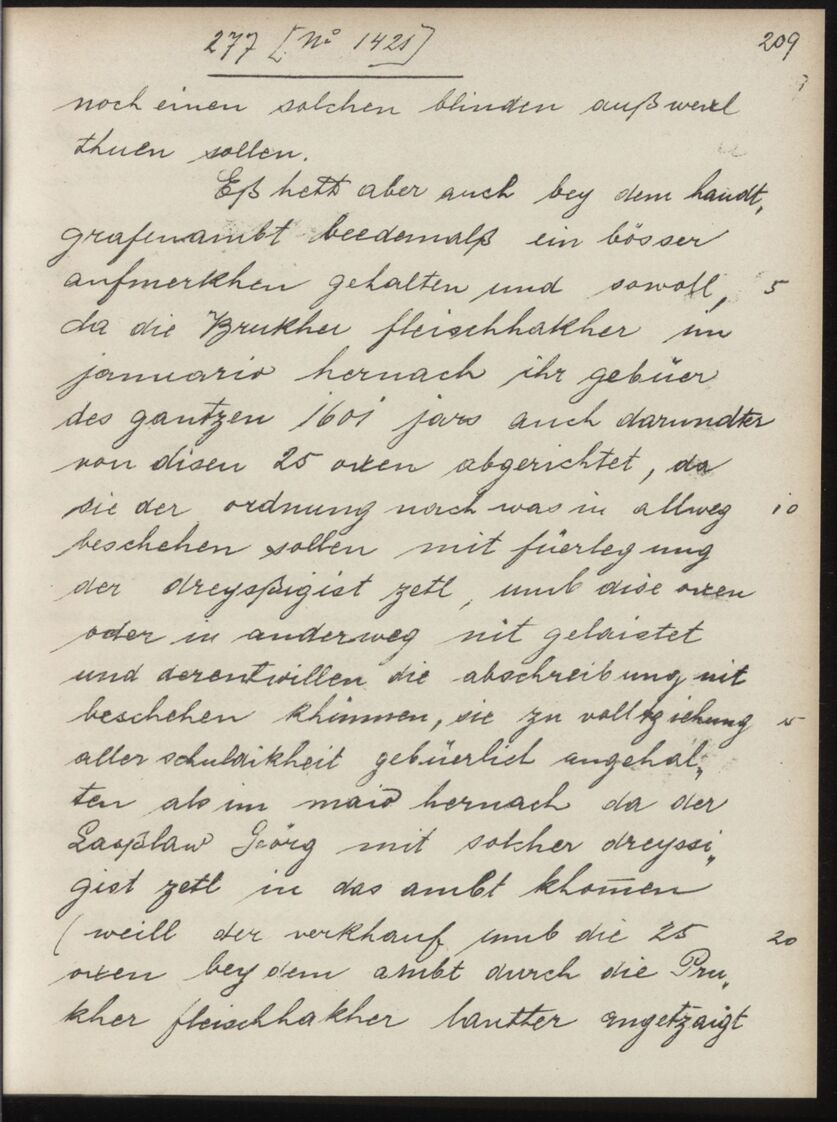 277 [No 1421] 209
noch einen solchen blinden außwexl
thuen sollen.
Eß hett aber auch bey dem handt„
grafenambt beedemalß ein bösser
aufmerkhen gehalten und sowoll, 5
da die Brukher fleischhakher im
januario hernach ihr gebüer
des gantzen 1601 jars auch darundter
von disen 25 oxen abgerichtet, da
sie der ordnung nach was in allweg 10
beschehen sollen mit füerlegung
der dreysßigist zetl, umb dise oxen
oder in anderweg nit gelaistet
und derentwillen die abschreibung nit
beschehen khinnen, sie zu volltziehung 15
aller schuldikheit gebüerlich angehal„
ten als im maio hernach da der
Laßlaw Geörg mit solcher dreyssi„
gist zetl in das ambt khom̅en
(weill der verkhauf umb die 25 20
oxen bey dem ambt durch die Pru„
kher fleischhakher lautter angetzaigt